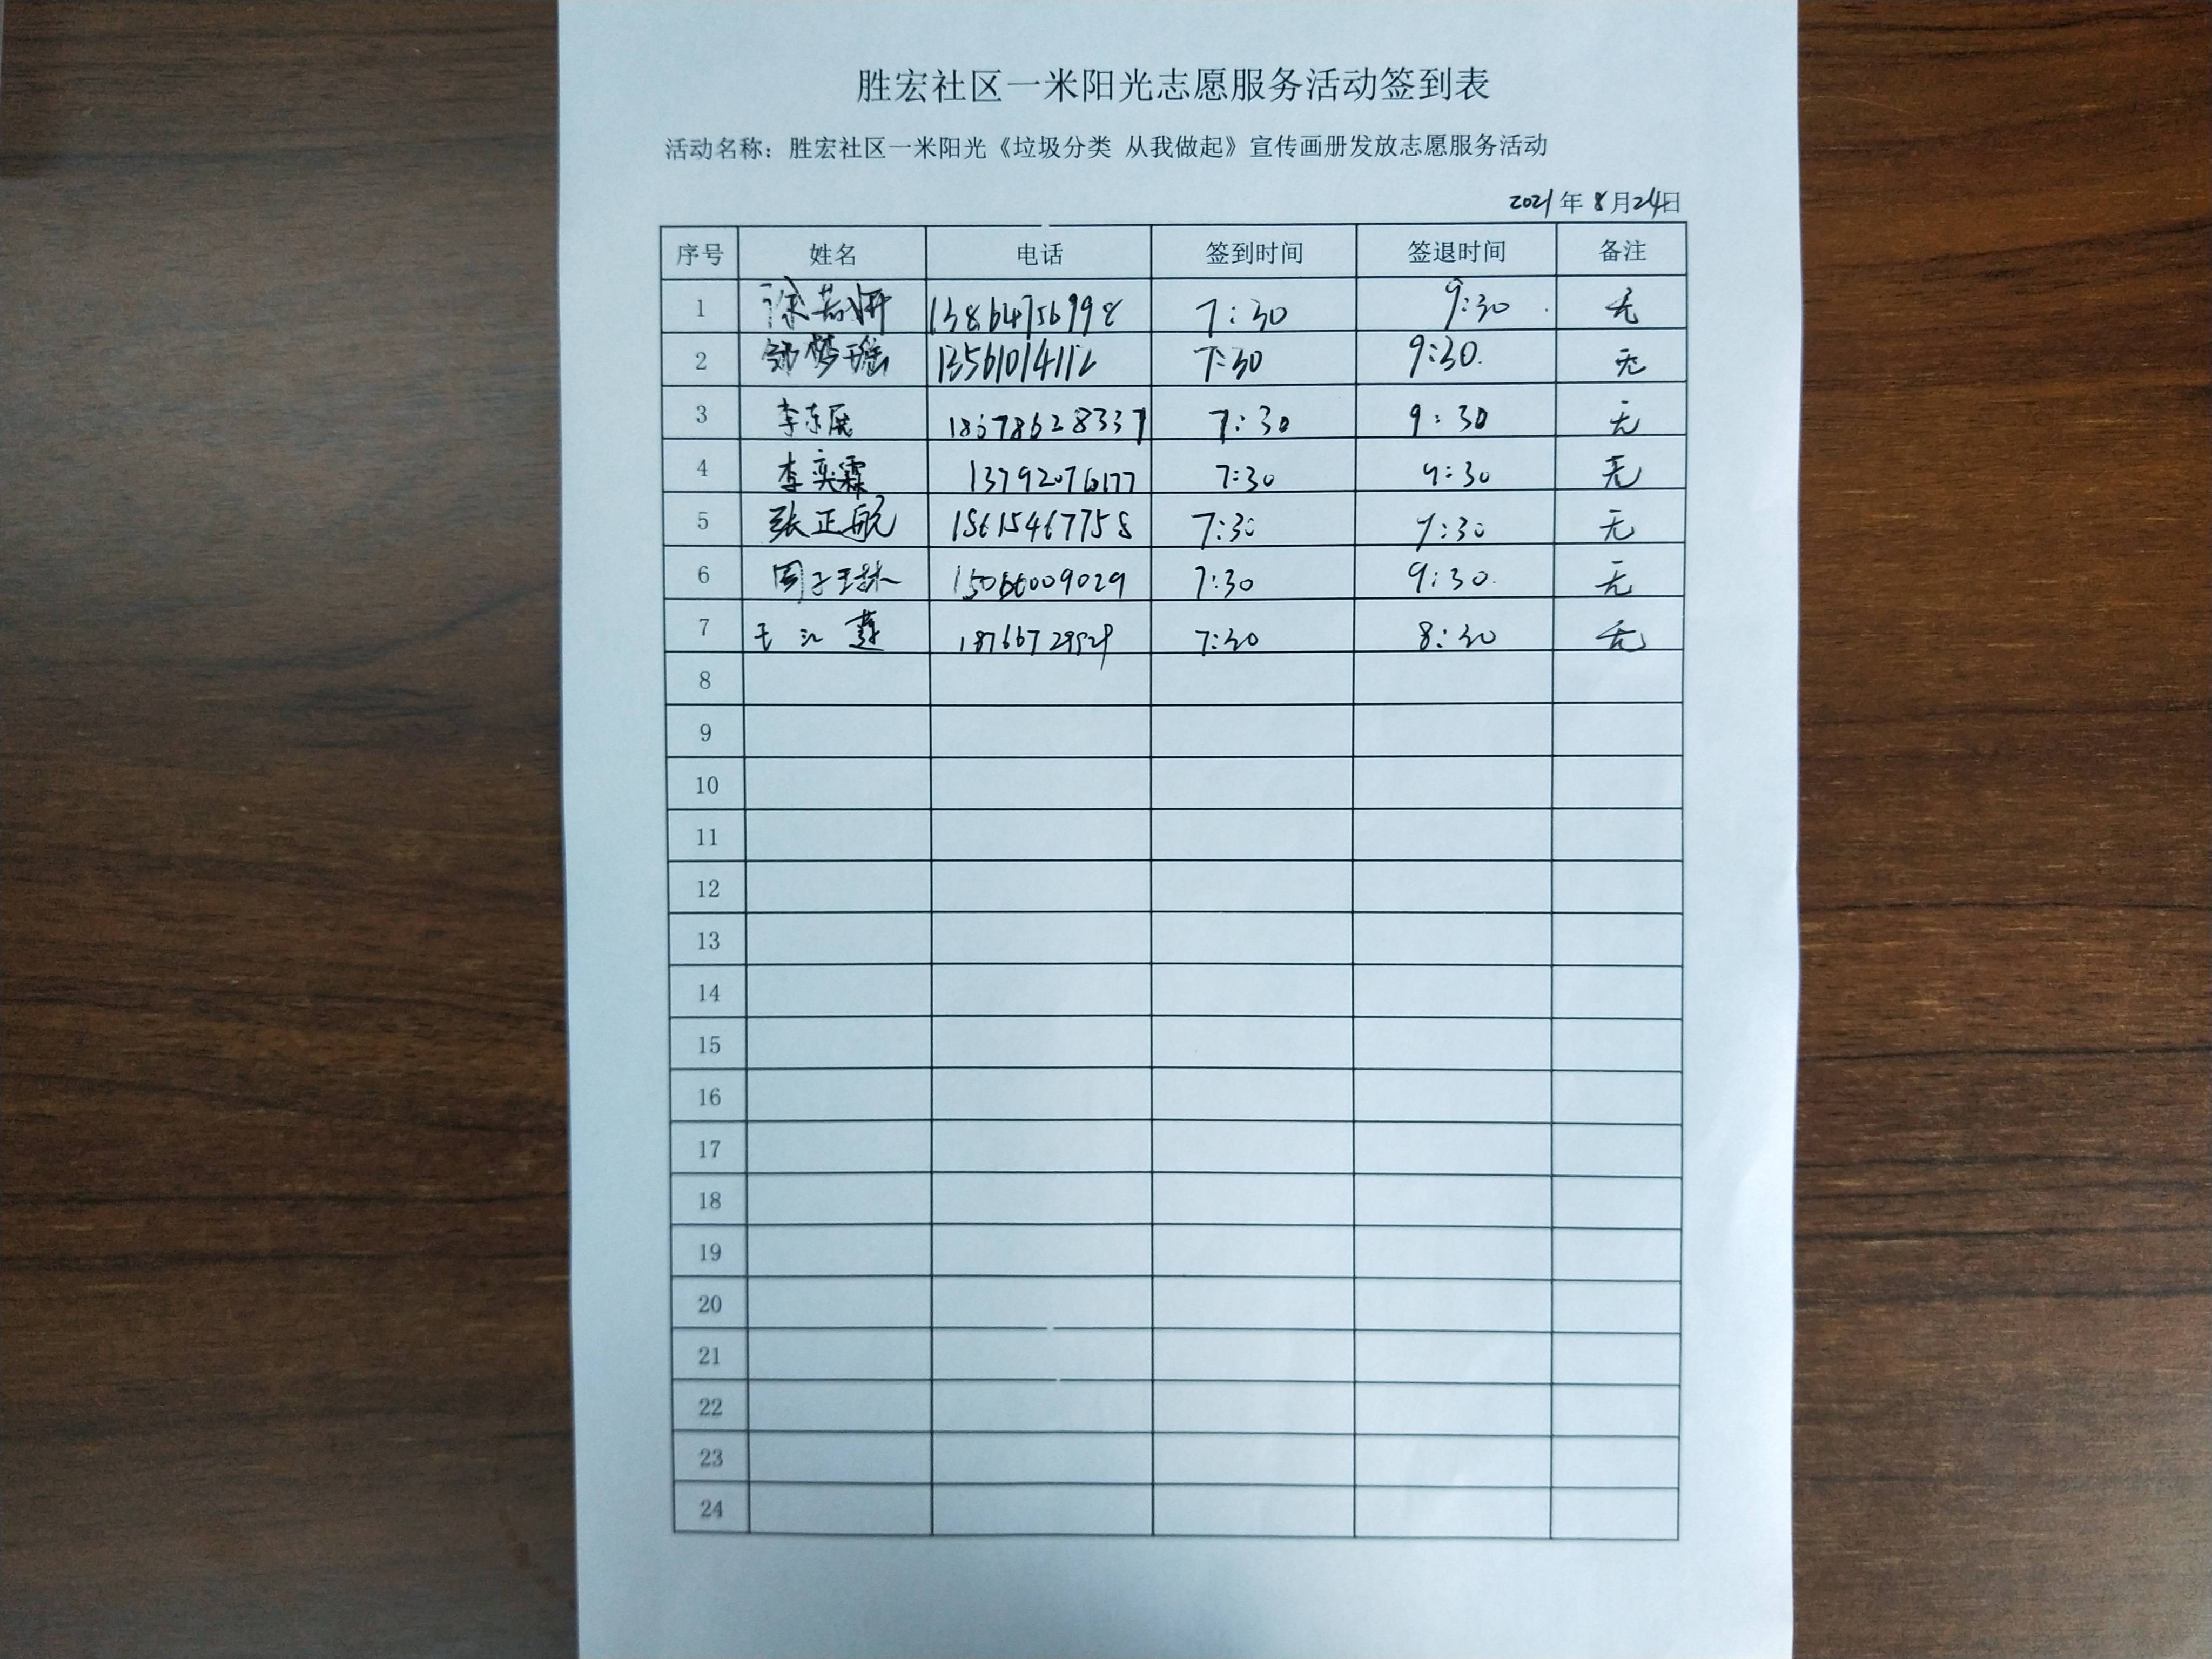 胜宏社区一米阳光志愿服务活动签到表
活动名称：胜宏社区一米阳光《垃圾分类 从我做起》宣传画册发放志愿服务活动
2021年 8月24日
序号 姓名 电话 签到时间 签退时间 备注
1 徐若妍 13864756998 7:30 9:30 无
2 梦瑶 13561014112 7:30 9:30. 无
3 李东展 18678628337 7:30 9:30 无
4 李奕霖 13792076177 7:30 9:30 无
5 张正航 15615467758 7:30 9:30 无
6 周子琳 15066009029 7:30 9:30. 无
7 王 7:30 8:30 无
8
9
10
11
12
13
14
15
16
17
18
19
20
21
22
23
24